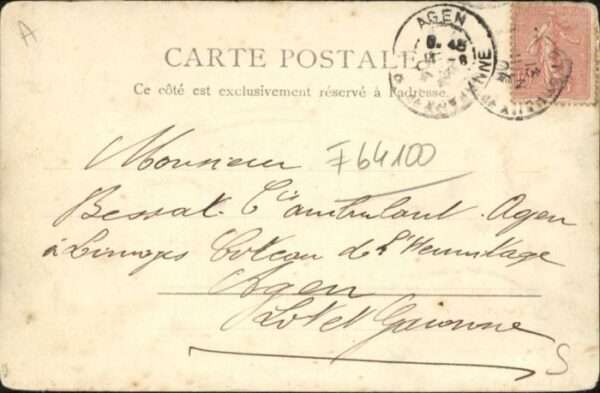 A
CARTE POSTALE
Ce côté est exclusivement réservé à l'adresse.
AGEN
6. 45
Monsieur
F64100
Bessat. Cis ambulant. Agen
à Limoges Coteau de l'Hermitage
Agen
Lot et Garonne
S